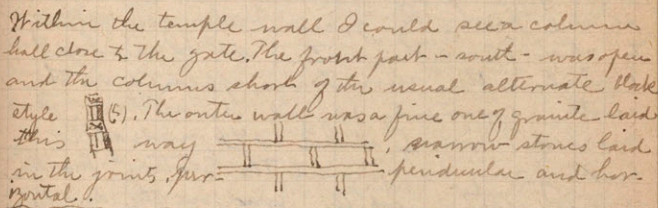 Within the temple wall I could see a column
hall close to the gate. The front part - south - was open
and the columns short of the usual alternate block
style (5). The outer wall was a fine one of granite laid
this way , narrow stones laid
in the joints, per- pendicular and hor-
izontal.